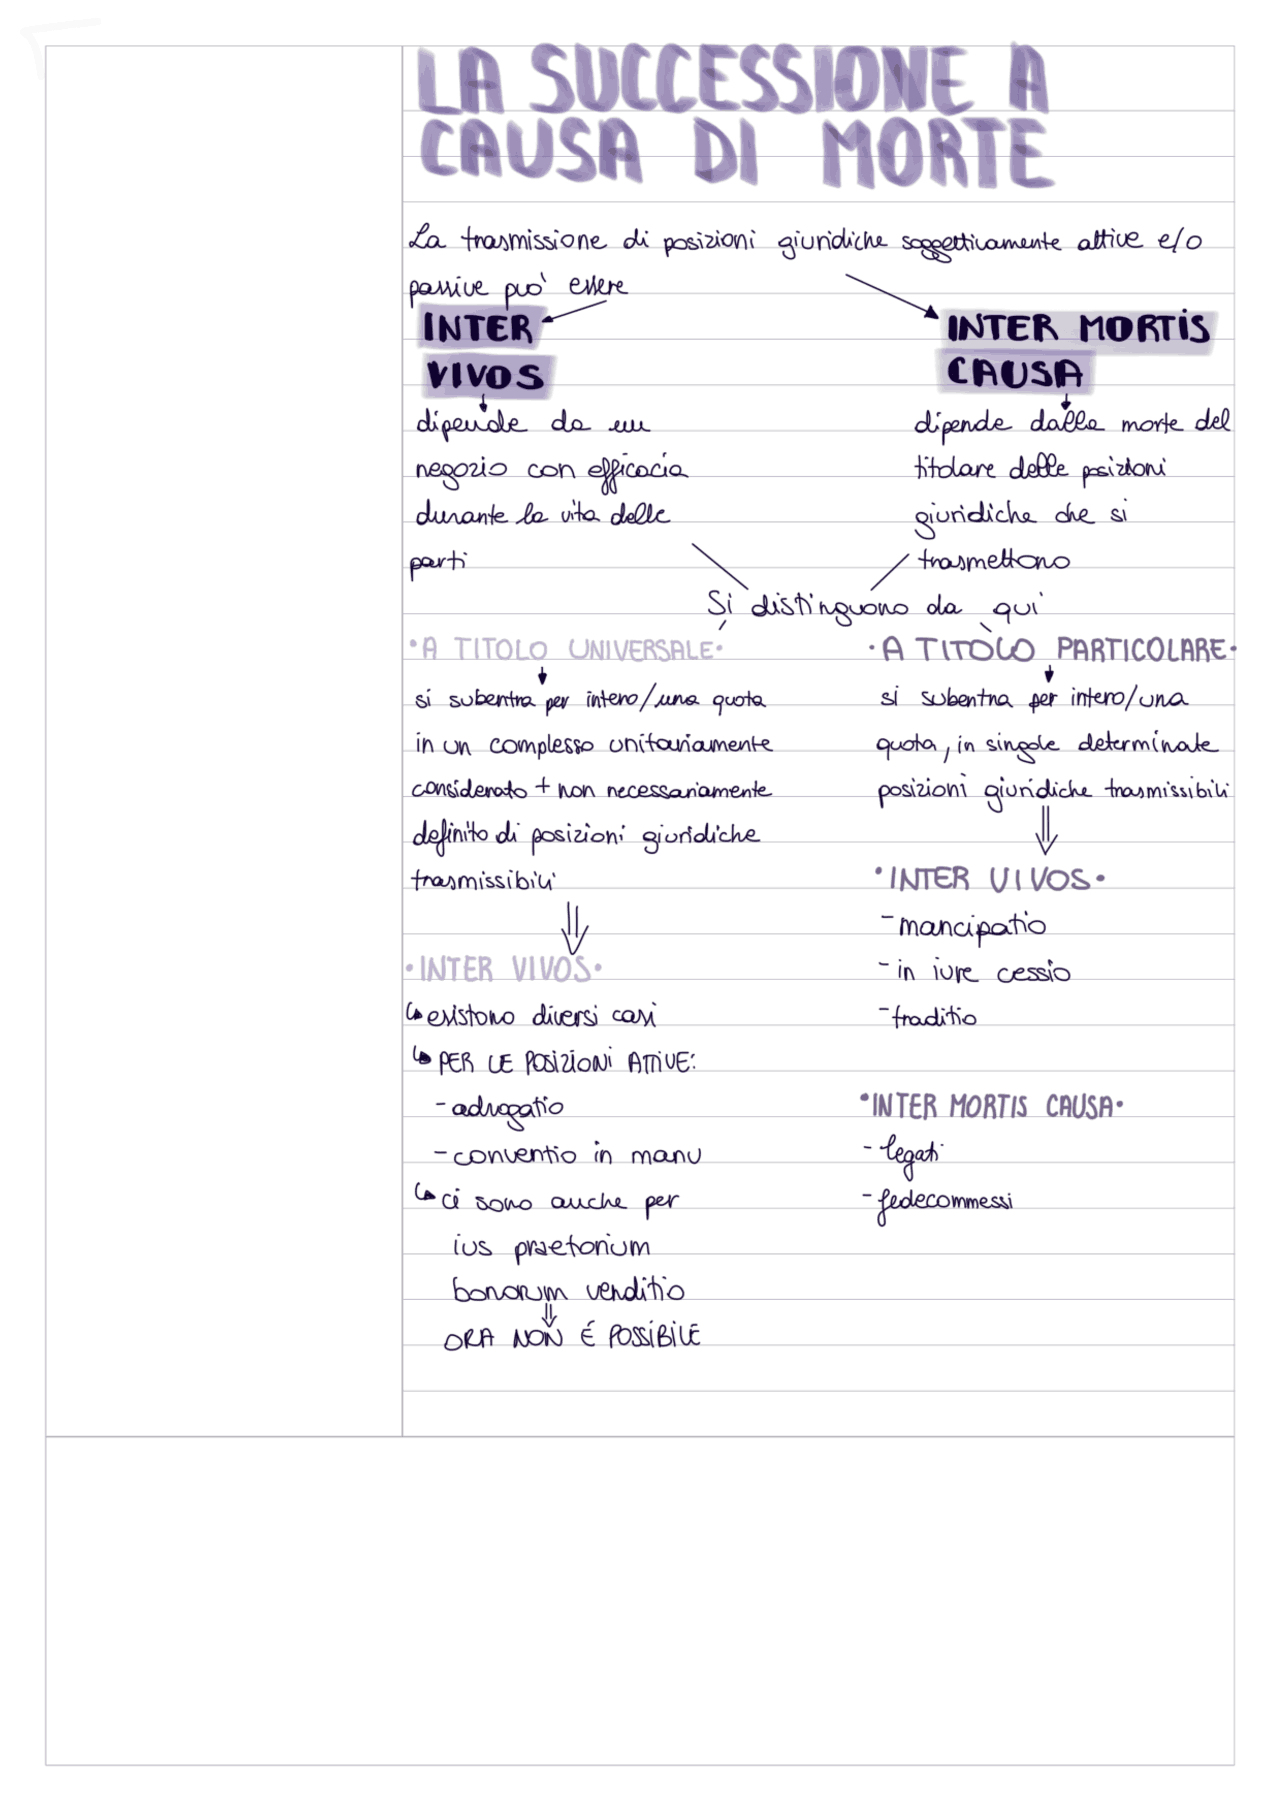 LA SUCCESSIONE A
CAUSA DI MORTE
La trasmissione di posizioni giuridiche soggettivamente attive e/o
passive può essere
INTER
VIVOS
dipende da un
negozio con efficacia
durante la vita delle
parti
INTER MORTIS
CAUSA
dipende dalla morte del
titolare delle posizioni
giuridiche che si
trasmettono
Si distinguono da qui
•A TITOLO UNIVERSALE•
si subentra per intero/una quota
in un complesso unitariamente
considerato + non necessariamente
definito di posizioni giuridiche
trasmissibili
•INTER VIVOS•
↳ esistono diversi casi
↳ PER LE POSIZIONI ATTIVE:
- adrogatio
- conventio in manu
↳ ci sono anche per
ius praetorium
bonorum venditio
ORA NON É POSSIBILE
•A TITOLO PARTICOLARE•
si subentra per intero/una
quota, in singole determinate
posizioni giuridiche trasmissibili
•INTER VIVOS•
- mancipatio
- in iure cessio
- traditio
•INTER MORTIS CAUSA•
- legati
- fedecommessi